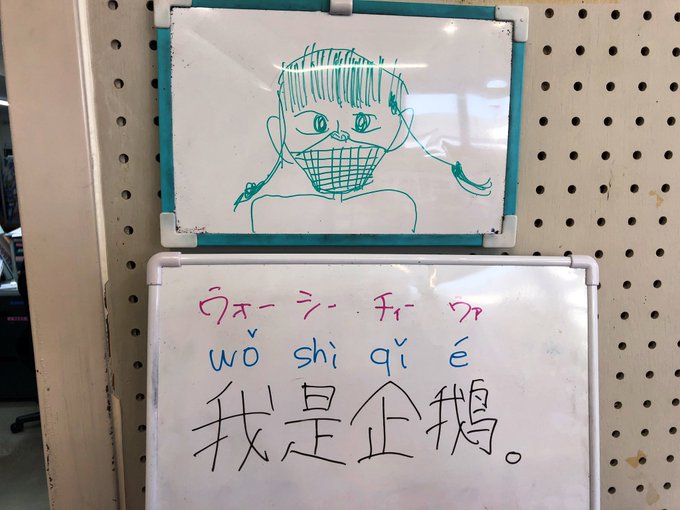 ウォー シー チィー ウァ
wǒ shì qǐ é
我是企鹅。